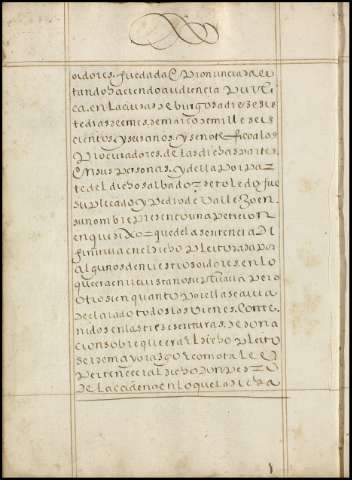 oidores fue dada E pronunciada es
tando haciendo audiencia publi
ca en la ciudad de burgos a diez e sie
te dias del mes de março de mill e seis
cientos y seis años y se notefico a los
Procuradores de las dichas partes
En sus personas y della por pa
te del dicho salbador de toledo fue
suplicado y Pedro de Valle Zo en
su nombre presento una peticion
en que dixo que de la sentencia di
finitiva en el dicho pleito dada por
algunos de nuestros oidores en lo
que era en su fabor suplicava pero
otrosi en quanto por ella se avia
declarado todos los vienes conte
nidos en las tres escrituras de dona
cion sobre que hera El dicho pleito
ser de mayorazgo E como tal
pertenecer al dicho don pedro
de la cadena en lo qual dicha